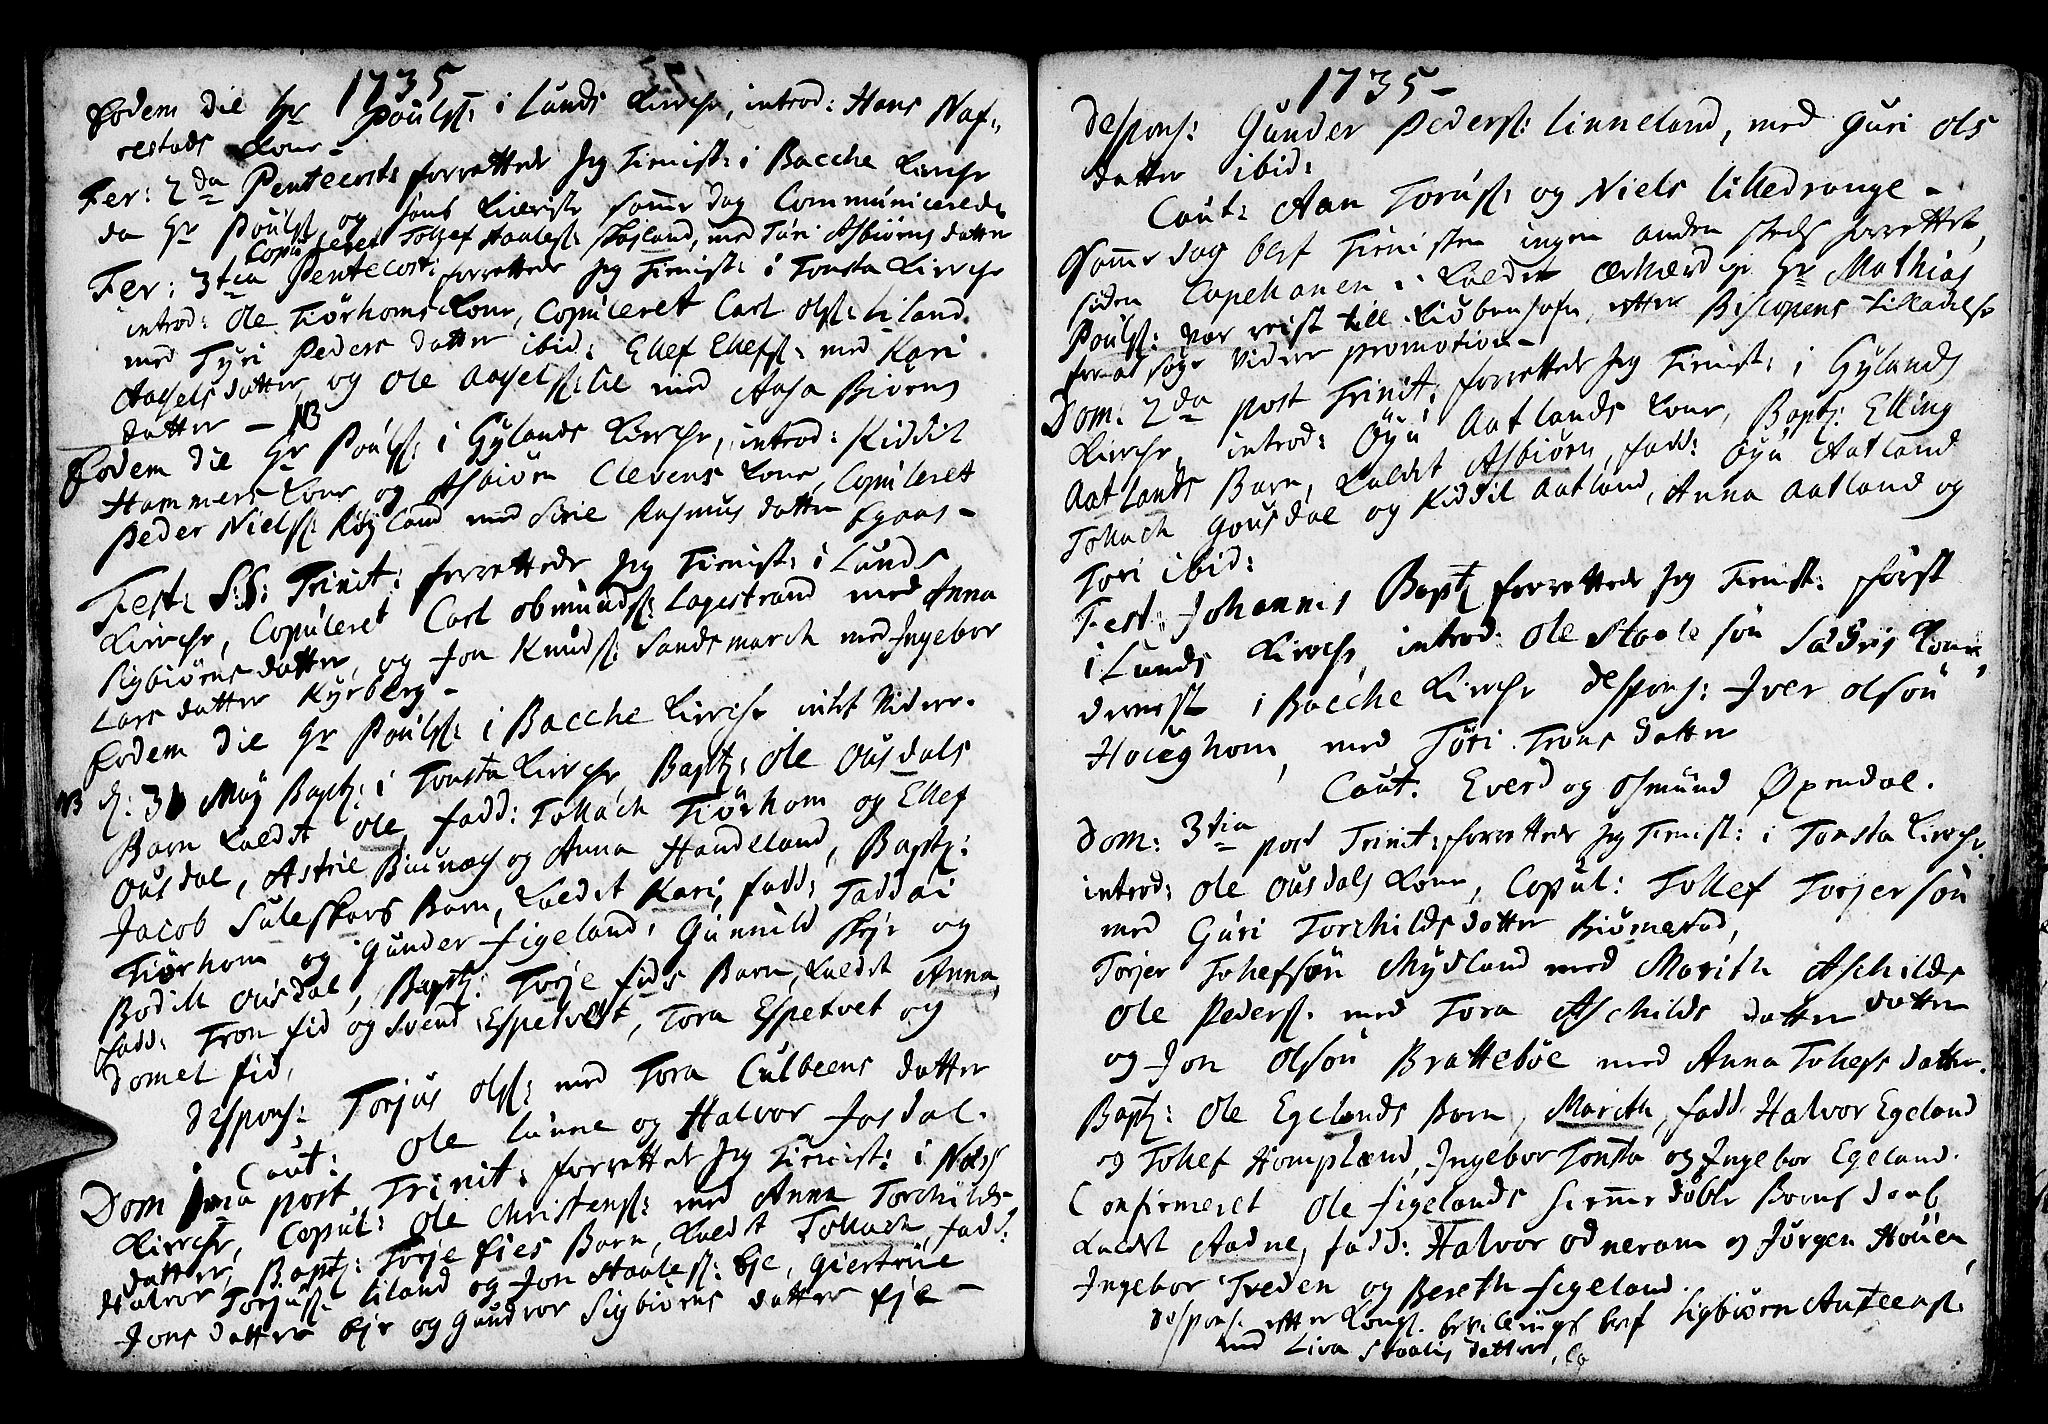 1735
Eodem die Hr Poulss: i Lunds Kirche, introd: Hans Naf-
restads Kone-
Fer: 2da Pentecost: forrettede Jeg Tienist: i Bacche Kirche
da Hr Poulss og hans Kiereste samme dag Communicerede
Copuleret Tollef Staaless: Røjland, med Turi Asbiørns datter
Fer: 3tia Pentecost: forrettede Jeg Tienist: i Tonsta Kirche
introd: Ole Tiørhoms Kone, Copuleret Carl Olss: Liland
med Tyri Peders datter ibid: Ellef Ellefss: med Kari
Aasels datter, og Ole Aaselss: med Aasa Biørns
datter - NB
Eodem die Hr Poulss: i Gylands Kirche, introd: Kiddil
Hammers Kone og Asbiørn Clevens Kone, Copuleret
Peder Nielss: Røjland med Sirie Rasmus datter
Fest: S:S: Trinit: forrettede Jeg Tienist: i Lunds
Kirche, Copuleret Carl Obmundss: Lagestrand med Anna
Sigbiørns datter, og Jon Knudss: Sandsmarch med Ingebor
Lars datter Kyrberg-
Eodem die Hr Poulss: i Bacche Kirche intet videre.
NB d: 31 Maj Bapt: i Tonsta Kirche Bapt: Ole Ousdals
Barn Kaldet Ole, fadd: Tollach Tiørhom og Ellef
Ousdal, Astrie og Anna Handeland, Bapt:
Jacob Suleskars Barn, Kaldet Kari, fadd: Taddai
Tiørhom og Gunder Figeland, Gunnild og
Bodill Ousdal, Bapt: Torje fids Barn, Kaldet Anna,
fadd: Tron fid og Svend Espetvet, Tora Espetvet og
Domel fid,
Despons: Torjus Olss: med Tora Culbeens datter
Caut: Ole Lunne og Halvor Josdal.
Dom 1ma post Trinit: forrettede Jeg Tienist: i Næss
Kirche, Copul: Ole Christenss: med Anna Torchilds-
datter, Bapt: Torje Eies Barn, Kaldet Tollach, fadd:
Halvor Torjuss: Liland og Jon Staaless: Eje, Giertrue
Jons datter Eje og Gundvor Sigbiørns datter Eje-
1735-
Despons: Gunder Pederss: Linneland, med Guri Ols
datter ibid:
Caut: Aan Toruss: og Niels Lilledrange-
Samme dag blef Tienisten ingen anden steds forrettet,
siden Capellanen i Kaldet ærværdige Hr Mathias
Poulss: var reist till Kiøbenhafn, efter Biscopens tilladelse
for at søge videre promotion-
Dom: 2da post Trinit: forrettede Jeg Tienist: i Gylands
Kirche, introd: Øyu Aatlands Kone, Bapt: Elling
Aatlands Barn, Kaldet Asbiørn, fadd: Øyu Aatland
Tollach Gousdal og Kiddil Aatland, Anna Aatland og
Tori ibid:
Fest: Johannis Bapt: forrettede Jeg Tienist: først
i Lunds Kirche, introd: Ole Staale søn Kone,
dernest i Bacche Kirche despons: Iver Olsøn
Houghom, med Tøri Trons datter
Caut. Everd og Osmund Øxendal.
Dom: 3tia post Trinit: forrettede Jeg Tienist: i Tonsta Kirche.
introd: Ole Ousdals Kone, Copul: Tollef Torjersøn
med Guri Torchilds datter Biørnestad,
Torjer Tollefsøn Mydland med Marith Aschilds
Ole Pederss: med Tora Aschilds datter datter
og Jon Olsøn Brattebøe med Anna Tollefs datter.
Bapt: Ole Egelands Barn, Marith, fadd. Halvor Egeland
og Tollef Homplænd, Ingebor Tonsta og Ingebor Egeland.
Confirmeret Ole Figelands hiemmedøbte Barns daab
Kaldet Aadne, fadd: Halvor Odneram og Jørgen Houen,
Ingebor Treden og Bereth Figeland.
despons: efter Kongl. bevillings bref Sigbiørn Anteenss:
med Liva Staales datter,